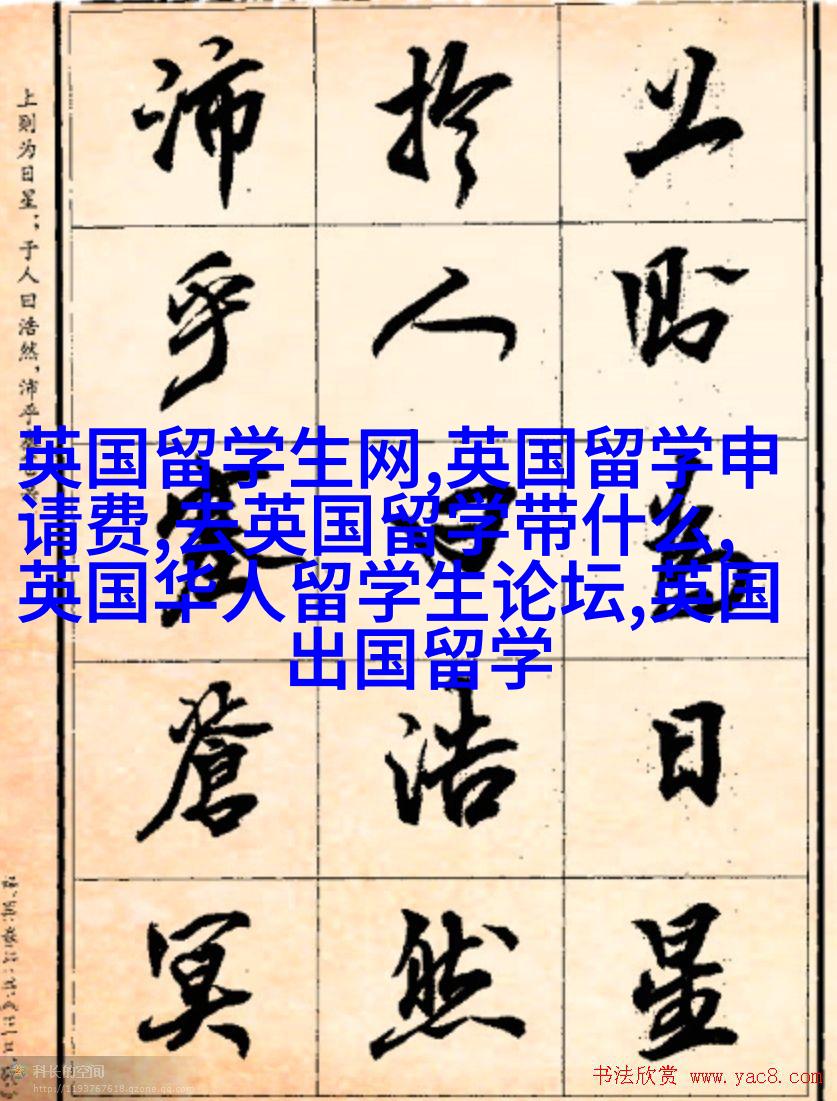 上则为日星；于人曰浩然，沛乎
上则为日星
於人曰浩然
沛乎塞苍冥
英国留学生网,英国留学申
请费,去英国留学带什么,
英国华人留学生论坛,英国
出国留学
科长的空间
http://1193767618.qzone.qq.com
书法欣赏 www.yac8.com